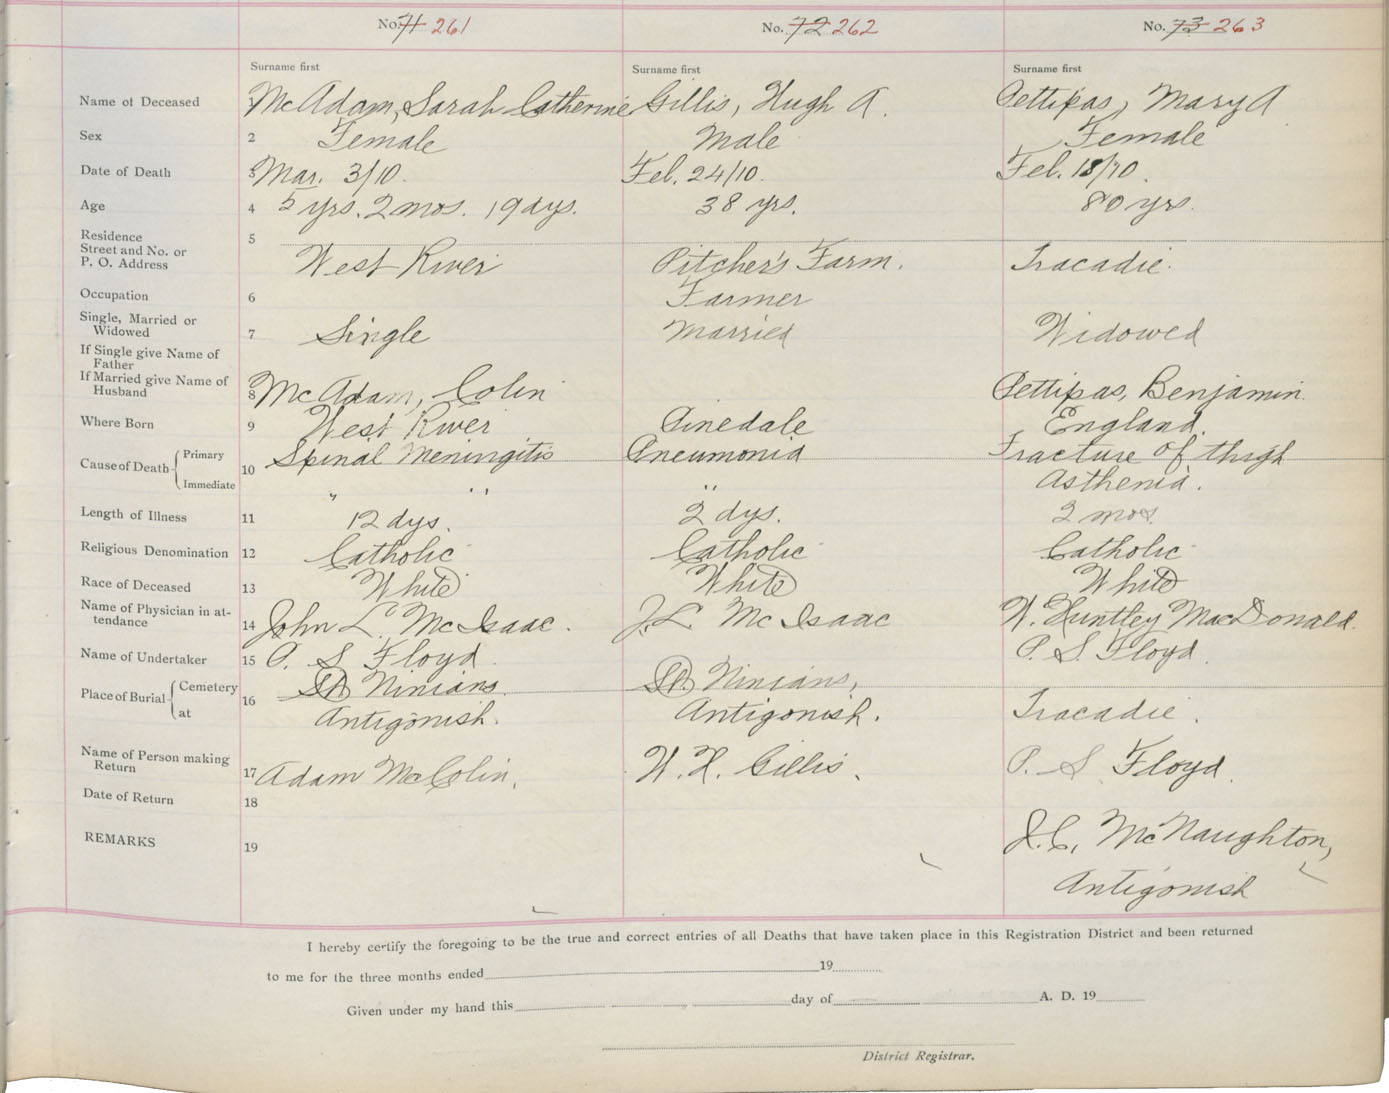 No. 71 261 No. 72 262 No. 73 263
Surname first Surname first Surname first
Name of Deceased 1 McAdam, Sarah Catherine Gillis, Hugh A. Pettipas, Mary A
Sex 2 Female Male Female
Date of Death 3 Mar. 3/10. Feb. 24/10. Feb. 18/10.
Age 4 5 yrs. 2 mos. 19 dys. 38 yrs. 80 yrs.
Residence
Street and No. or
P. O. Address 5 West River Pitcher's Farm. Tracadie.
Occupation 6 Farmer
Single, Married or
Widowed 7 Single Married Widowed
If Single give Name of
Father
If Married give Name of
Husband 8 McAdam, Colin Pettipas, Benjamin.
Where Born 9 West River Pinedale England.
Cause of Death Primary 10 Spinal Meningitis Pneumonia Fracture of thigh
Immediate " " " Asthenia.
Length of Illness 11 12 dys. 2 dys. 2 mos.
Religious Denomination 12 Catholic Catholic Catholic
Race of Deceased 13 White White White
Name of Physician in at-
tendance 14 John L. McIsaac. J. L. McIsaac W. Huntley MacDonald.
Name of Undertaker 15 P. S. Floyd P. S. Floyd.
Place of Burial Cemetery 16 St. Ninians. St. Ninians,
at Antigonish. Antigonish. Tracadie.
Name of Person making
Return 17 Adam McColin. W. H. Gillis. P. S. Floyd.
Date of Return 18
REMARKS 19 J. C. McNaughton,
Antigonish
I hereby certify the foregoing to be the true and correct entries of all Deaths that have taken place in this Registration District and been returned
to me for the three months ended 19
Given under my hand this day of A. D. 19
District Registrar.